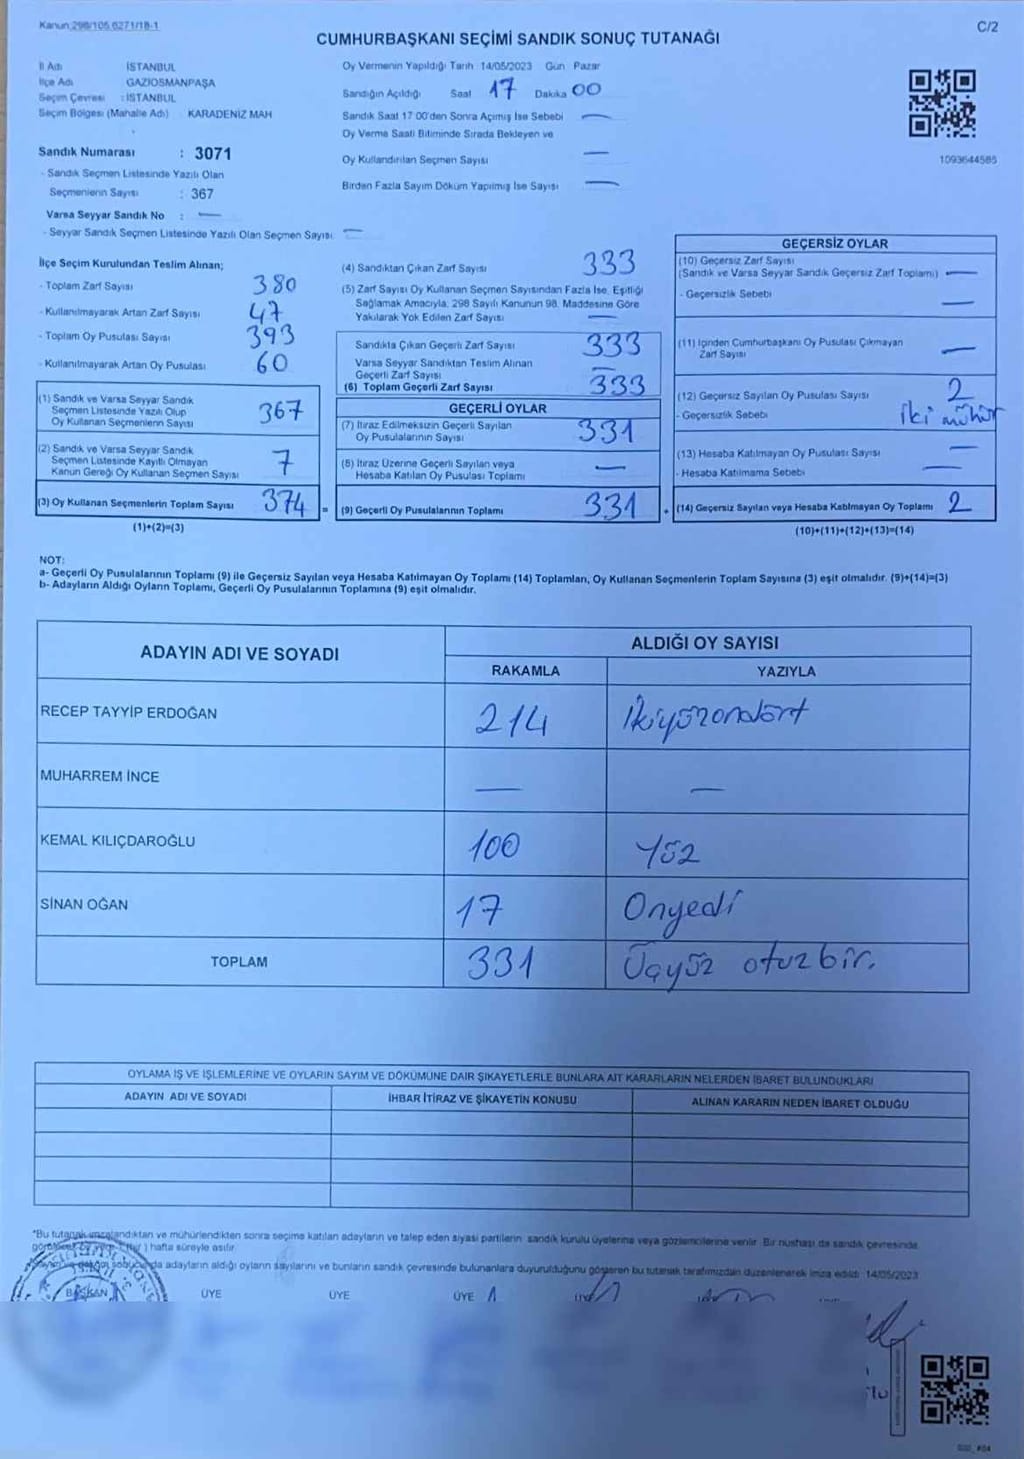 Kanun:298/105,6271/18-1
C/2
CUMHURBAŞKANI SEÇİMİ SANDIK SONUÇ TUTANAĞI
İl Adı İSTANBUL
İlçe Adı GAZİOSMANPAŞA
Seçim Çevresi : İSTANBUL
Seçim Bölgesi (Mahalle Adı) : KARADENİZ MAH
Sandık Numarası : 3071
- Sandık Seçmen Listesinde Yazılı Olan
Seçmenlerin Sayısı : 367
Varsa Seyyar Sandık No : —
- Seyyar Sandık Seçmen Listesinde Yazılı Olan Seçmen Sayısı: —
Oy Vermenin Yapıldığı Tarih 14/05/2023 Gün Pazar
Sandığın Açıldığı Saat 17 Dakika 00
Sandık Saat 17 00'den Sonra Açımış İse Sebebi —
Oy Verme Saati Bitiminde Sırada Bekleyen ve
Oy Kullandırılan Seçmen Sayısı —
Birden Fazla Sayım Döküm Yapılmış İse Sayısı —
1093644585
İlçe Seçim Kurulundan Teslim Alınan;
- Toplam Zarf Sayısı 380
- Kullanılmayarak Artan Zarf Sayısı 47
- Toplam Oy Pusulası Sayısı 393
- Kullanılmayarak Artan Oy Pusulası 60
(1) Sandık ve Varsa Seyyar Sandık
Seçmen Listesinde Yazılı Olup
Oy Kullanan Seçmenlerin Sayısı 367
(2) Sandık ve Varsa Seyyar Sandık
Seçmen Listesinde Kayıtlı Olmayan
Kanun Gereği Oy Kullanan Seçmen Sayısı 7
(3) Oy Kullanan Seçmenlerin Toplam Sayısı 374 =
(1)+(2)=(3)
(4) Sandıktan Çıkan Zarf Sayısı 333
(5) Zarf Sayısı Oy Kullanan Seçmen Sayısından Fazla İse, Eşitliği
Sağlamak Amacıyla, 298 Sayılı Kanunun 98. Maddesine Göre
Yakılarak Yok Edilen Zarf Sayısı —
Sandıkta Çıkan Geçerli Zarf Sayısı 333
Varsa Seyyar Sandıktan Teslim Alınan
Geçerli Zarf Sayısı —
(6) Toplam Geçerli Zarf Sayısı 333
GEÇERLİ OYLAR
(7) İtiraz Edilmeksizin Geçerli Sayılan
Oy Pusulalarının Sayısı 331
(8) İtiraz Üzerine Geçerli Sayılan veya
Hesaba Katılan Oy Pusulası Toplamı —
(9) Geçerli Oy Pusulalarının Toplamı 331 +
GEÇERSİZ OYLAR
(10) Geçersiz Zarf Sayısı
(Sandık ve Varsa Seyyar Sandık Geçersiz Zarf Toplamı) —
- Geçersizlik Sebebi —
(11) İçinden Cumhurbaşkanı Oy Pusulası Çıkmayan
Zarf Sayısı —
(12) Geçersiz Sayılan Oy Pusulası Sayısı 2
- Geçersizlik Sebebi iki mühür
(13) Hesaba Katılmayan Oy Pusulası Sayısı —
- Hesaba Katılmama Sebebi —
(14) Geçersiz Sayılan veya Hesaba Katılmayan Oy Toplamı 2
(10)+(11)+(12)+(13)=(14)
NOT:
a- Geçerli Oy Pusulalarının Toplamı (9) ile Geçersiz Sayılan veya Hesaba Katılmayan Oy Toplamı (14) Toplamları, Oy Kullanan Seçmenlerin Toplam Sayısına (3) eşit olmalıdır. (9)+(14)=(3)
b- Adayların Aldığı Oyların Toplamı, Geçerli Oy Pusulalarının Toplamına (9) eşit olmalıdır.
ADAYIN ADI VE SOYADI ALDIĞI OY SAYISI
RAKAMLA YAZIYLA
RECEP TAYYİP ERDOĞAN 214 İkiyüzondört
MUHARREM İNCE — —
KEMAL KILIÇDAROĞLU 100 Yüz
SİNAN OĞAN 17 Onyedi
TOPLAM 331 Üçyüz otuzbir.
OYLAMA İŞ VE İŞLEMLERİNE VE OYLARIN SAYIM VE DÖKÜMÜNE DAİR ŞİKAYETLERLE BUNLARA AİT KARARLARIN NELERDEN İBARET BULUNDUKLARI
ADAYIN ADI VE SOYADI İHBAR İTİRAZ VE ŞİKAYETİN KONUSU ALINAN KARARIN NEDEN İBARET OLDUĞU
*Bu tutanak imzalandıktan ve mühürlendikten sonra seçime katılan adayların ve talep eden siyasi partilerin sandık kurulu üyelerine veya gözlemcilerine verilir. Bir nüshası da sandık çevresinde
hafta süreyle asılır.
adayların aldığı oyların sayılarını ve bunların sandık çevresinde bulunanlara duyurulduğunu gösteren bu tutanak tarafımızdan düzenlenerek imza edildi 14/05/2023
BAŞKAN ÜYE ÜYE ÜYE